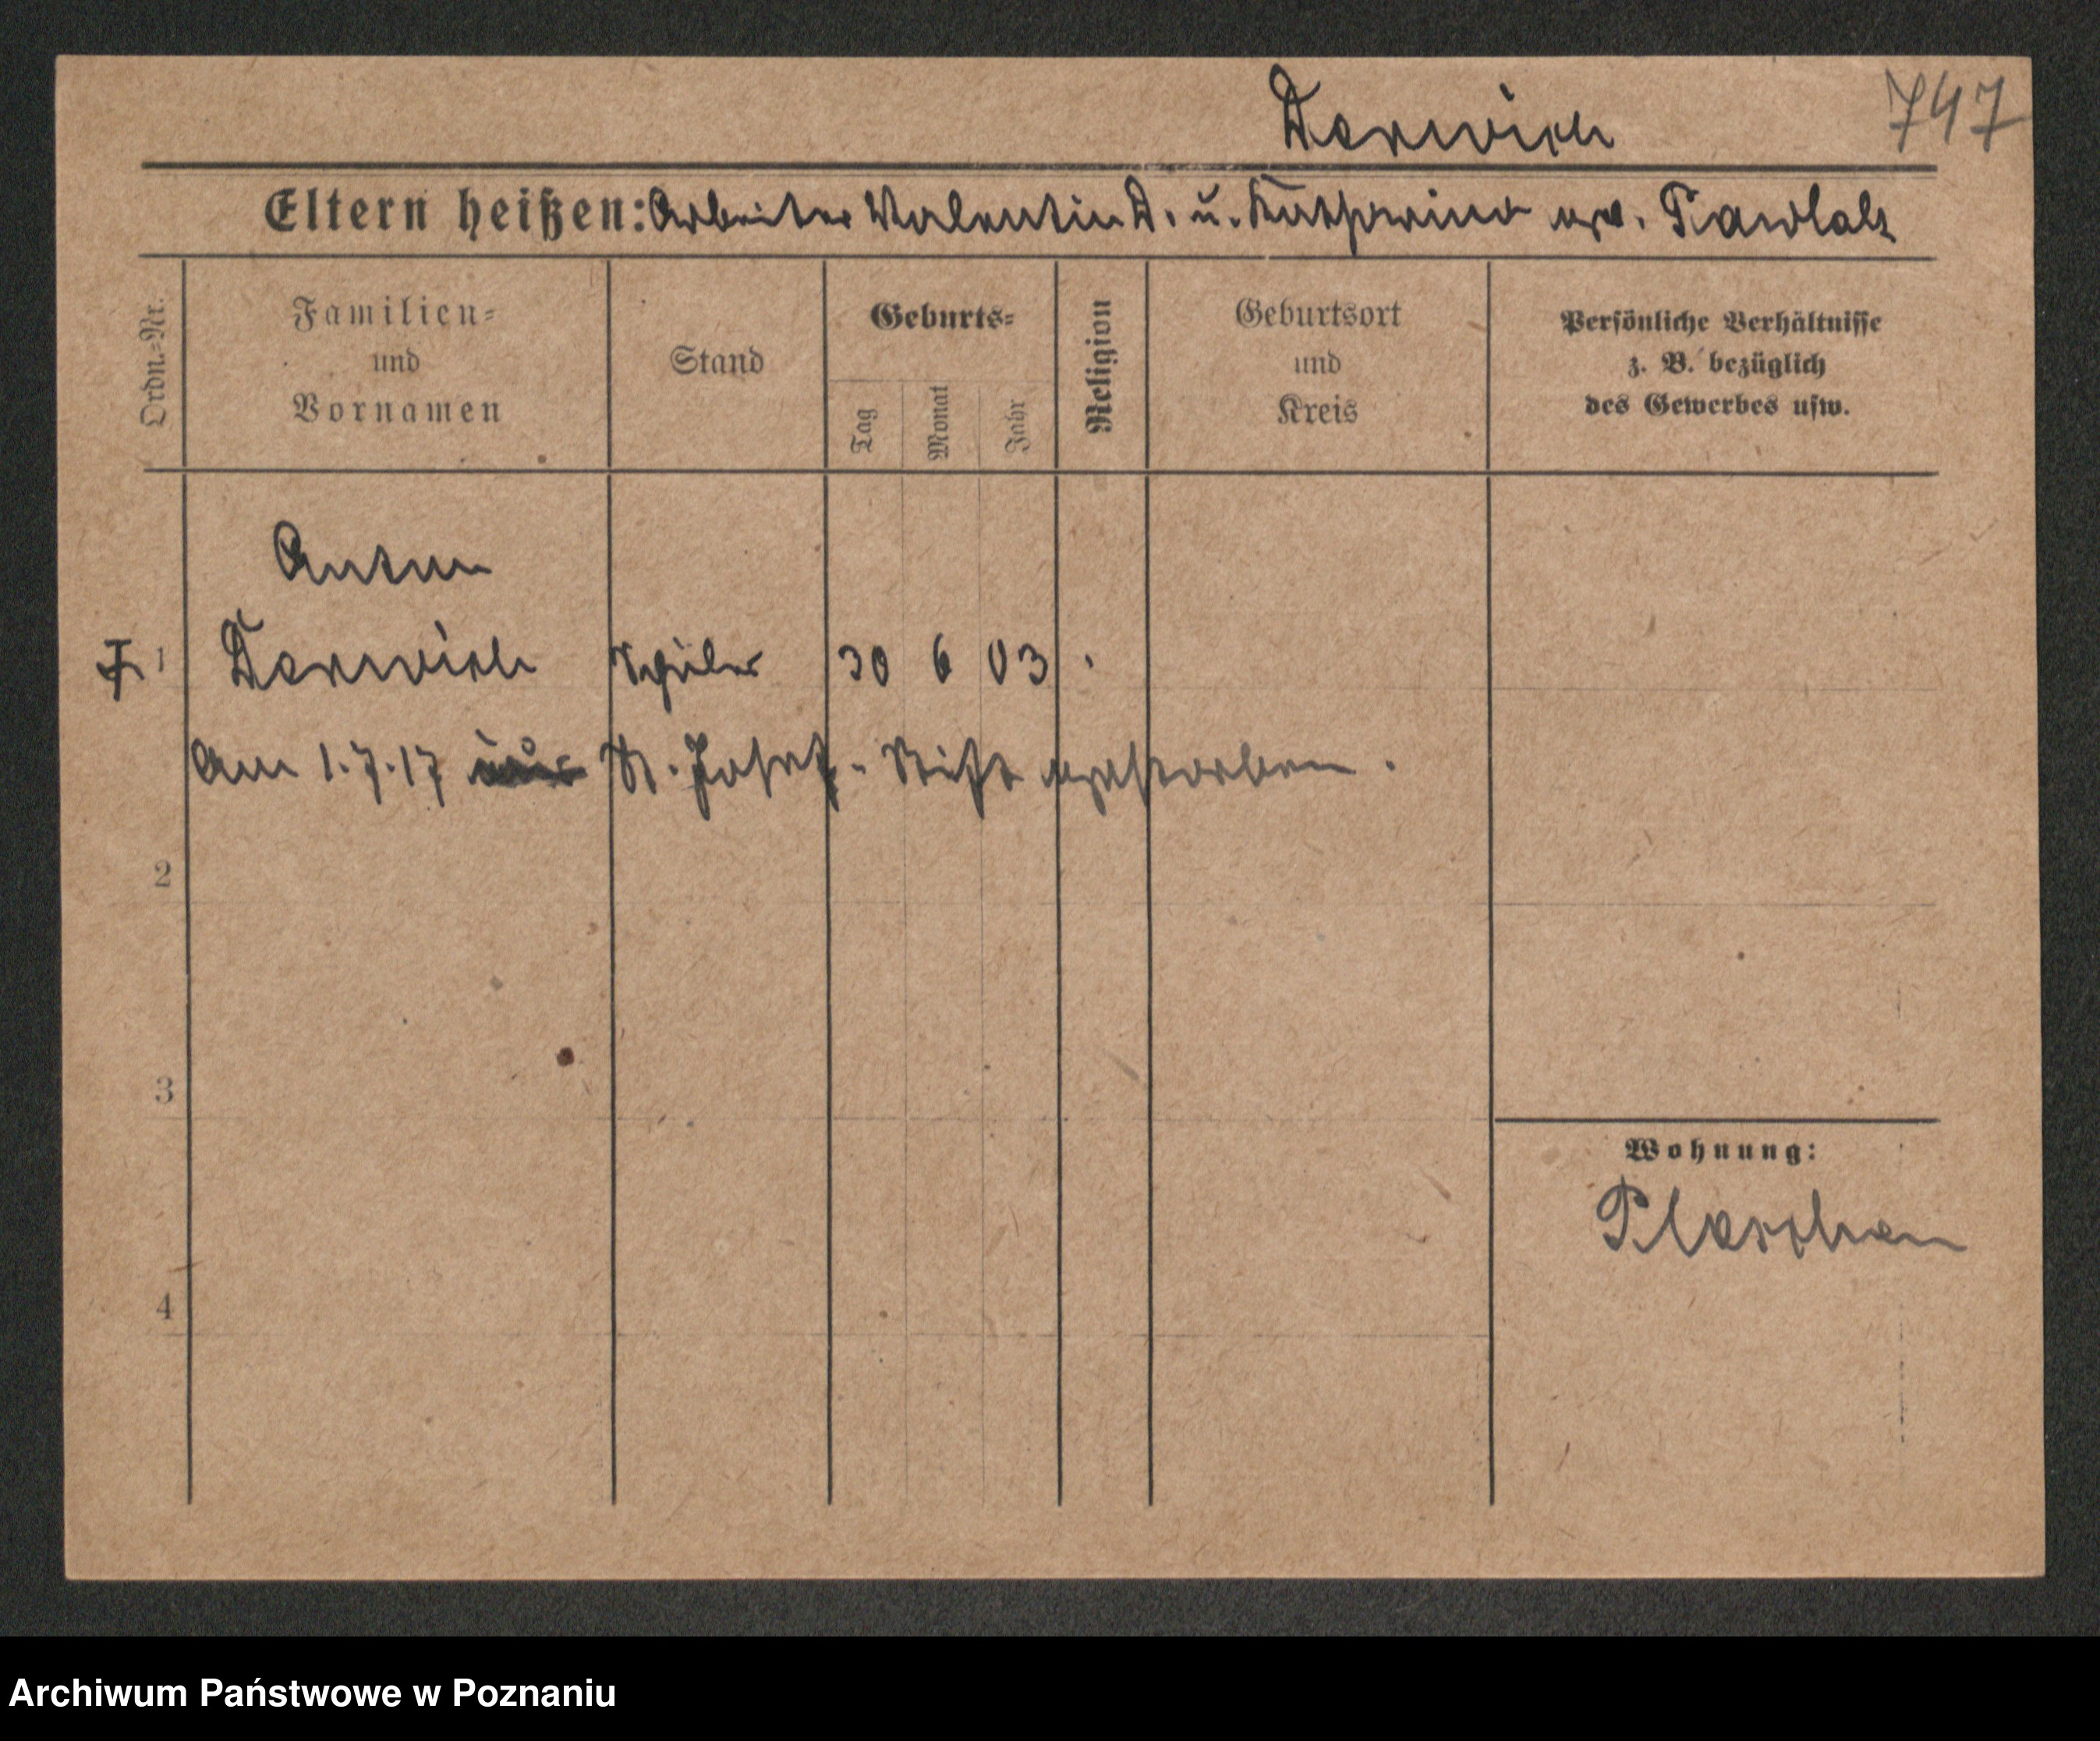 Derwich 747
Eltern heißen: Arbeiter Valentin D. u. Katharina geb. Pawlak
Ordn.-Nr.
Familien-
und
Vornamen
Stand
Geburts-
Tag
Monat
Jahr
Religion
Geburtsort
und
Kreis
Persönliche Verhältnisse
z. B. bezüglich
des Gewerbes usw.
Anton
1 Derwich Schüler 30 6 03
Am 1.7.17 St. Josef-Stift gestorben.
2
3
4
Wohnung:
Pleschen
Archiwum Państwowe w Poznaniu